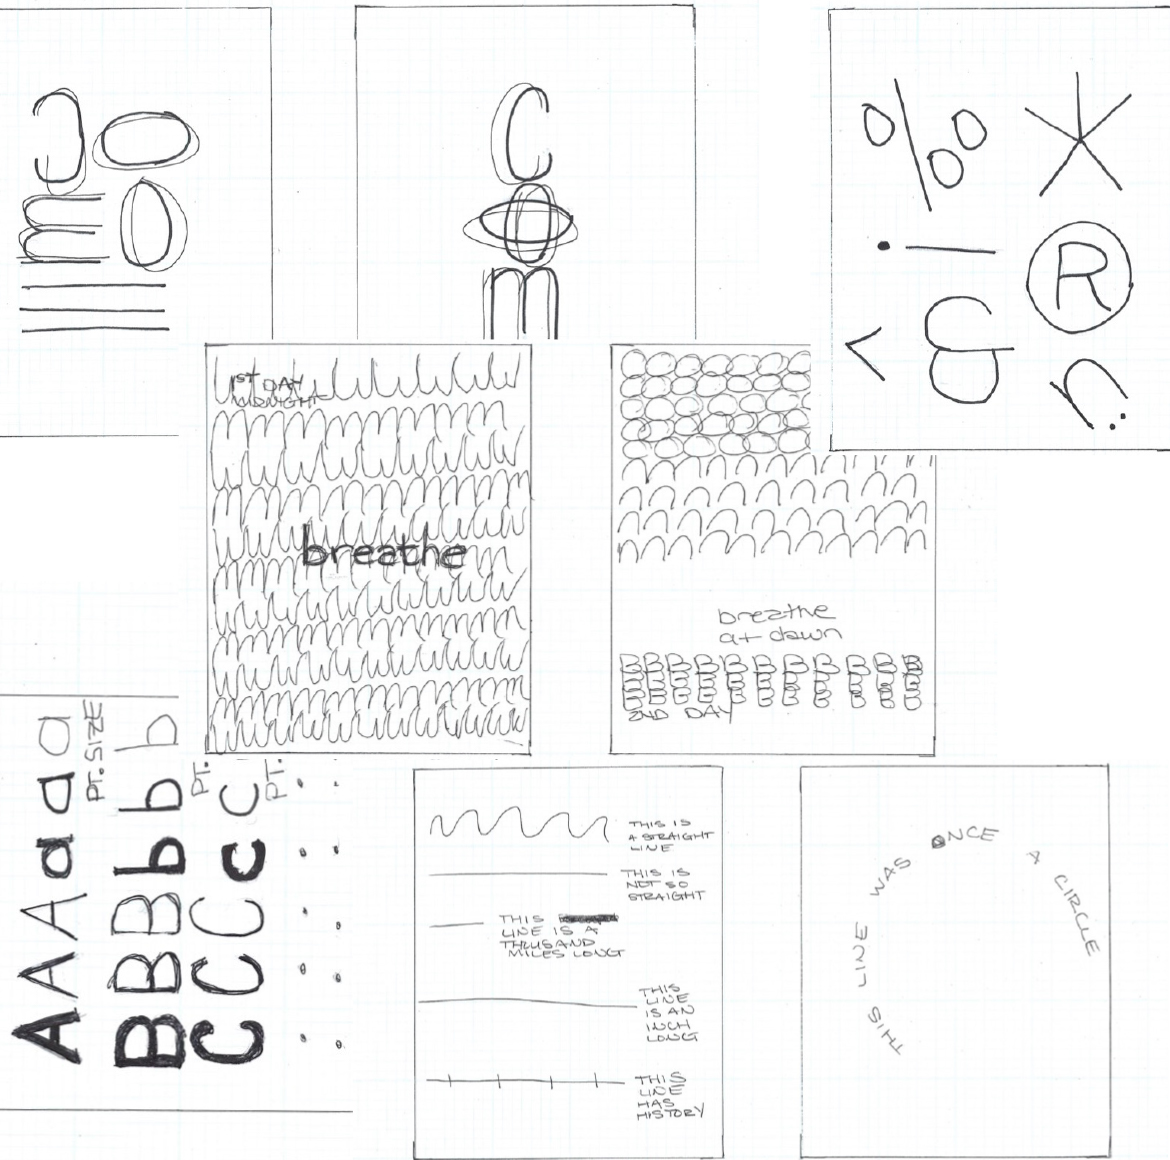 C
O
m
‰
*
!
®
<
&
1ST DAY
MIDNIGHT
breathe
breathe
at dawn
B B B B B B B B B B B
2ND DAY
A A A a a a
PT. SIZE
B B B b b b
PT.
C C C c c
PT.
THIS IS
A STRAIGHT
LINE
THIS IS
NOT SO
STRAIGHT
THIS
LINE IS A
THOUSAND
MILES LONG
THIS
LINE
IS AN
INCH
LONG
THIS
LINE
HAS
HISTORY
THIS LINE WAS ONCE A CIRCLE